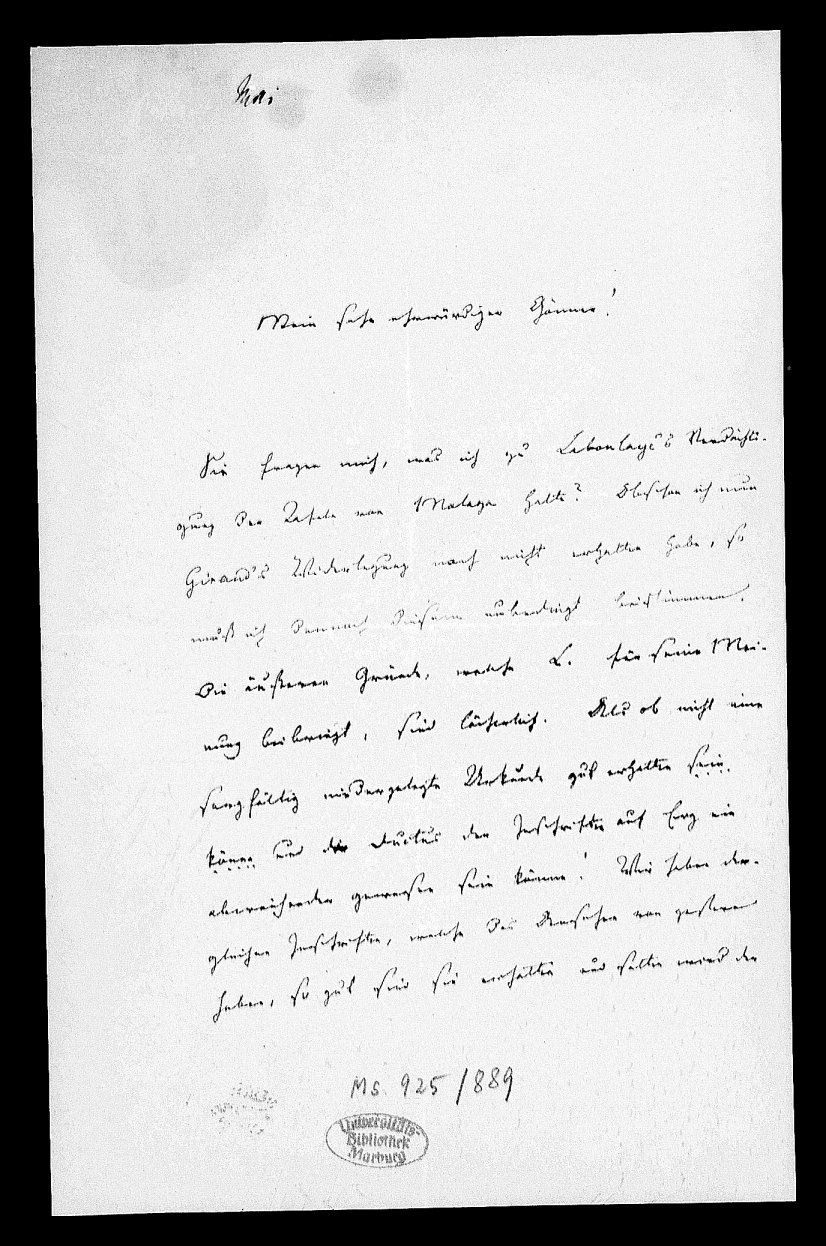 Mai
Mein sehr ehrwürdiger Gönner!
Sie fragen mich, was ich zu Laboulaye's Verdächti-
gung der Tafeln von Malaga halte? Obschon ich nun
Giraud's Widerlegung noch nicht erhalten habe, so
muß ich dennoch diesem unbedingt beistimmen.
Die äußeren Gründe, welche L. für seine Mei-
nung beibringt, sind lächerlich. Als ob nicht eine
sorgfältig niedergelegte Urkunde gut erhalten sein
könne und der Ductus der Inschriften auf Erz ein
abweichender gewesen sein könne! Wir haben der-
gleichen Inschriften, welche das Ansehen von gestern
haben, so gut sind sie erhalten und selten wird der
Ms. 925/889
Universitäts-
Bibliothek
Marburg